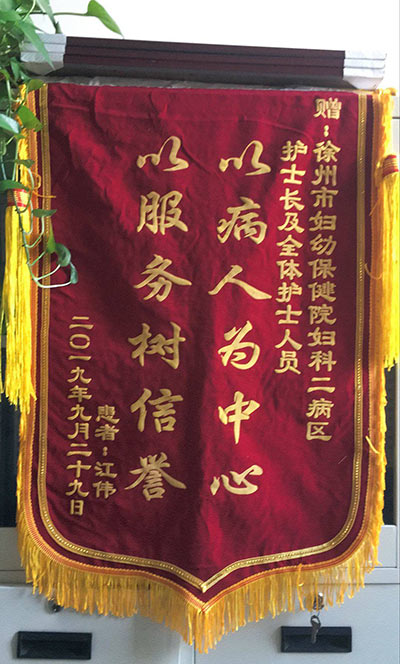 赠：徐州市妇幼保健院妇科二病区
护士长及全体护士人员
以病人为中心
以服务树信誉
患者：江伟
二〇一九年九月二十九日